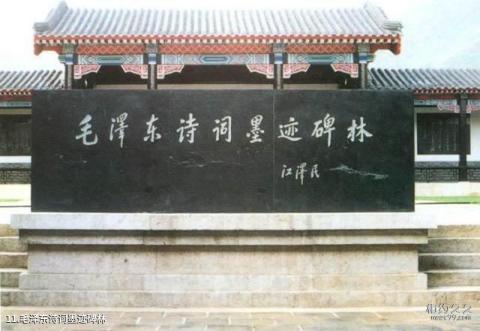 毛泽东诗词墨迹碑林
江泽民
11.毛泽东诗词墨迹碑林
相约久久